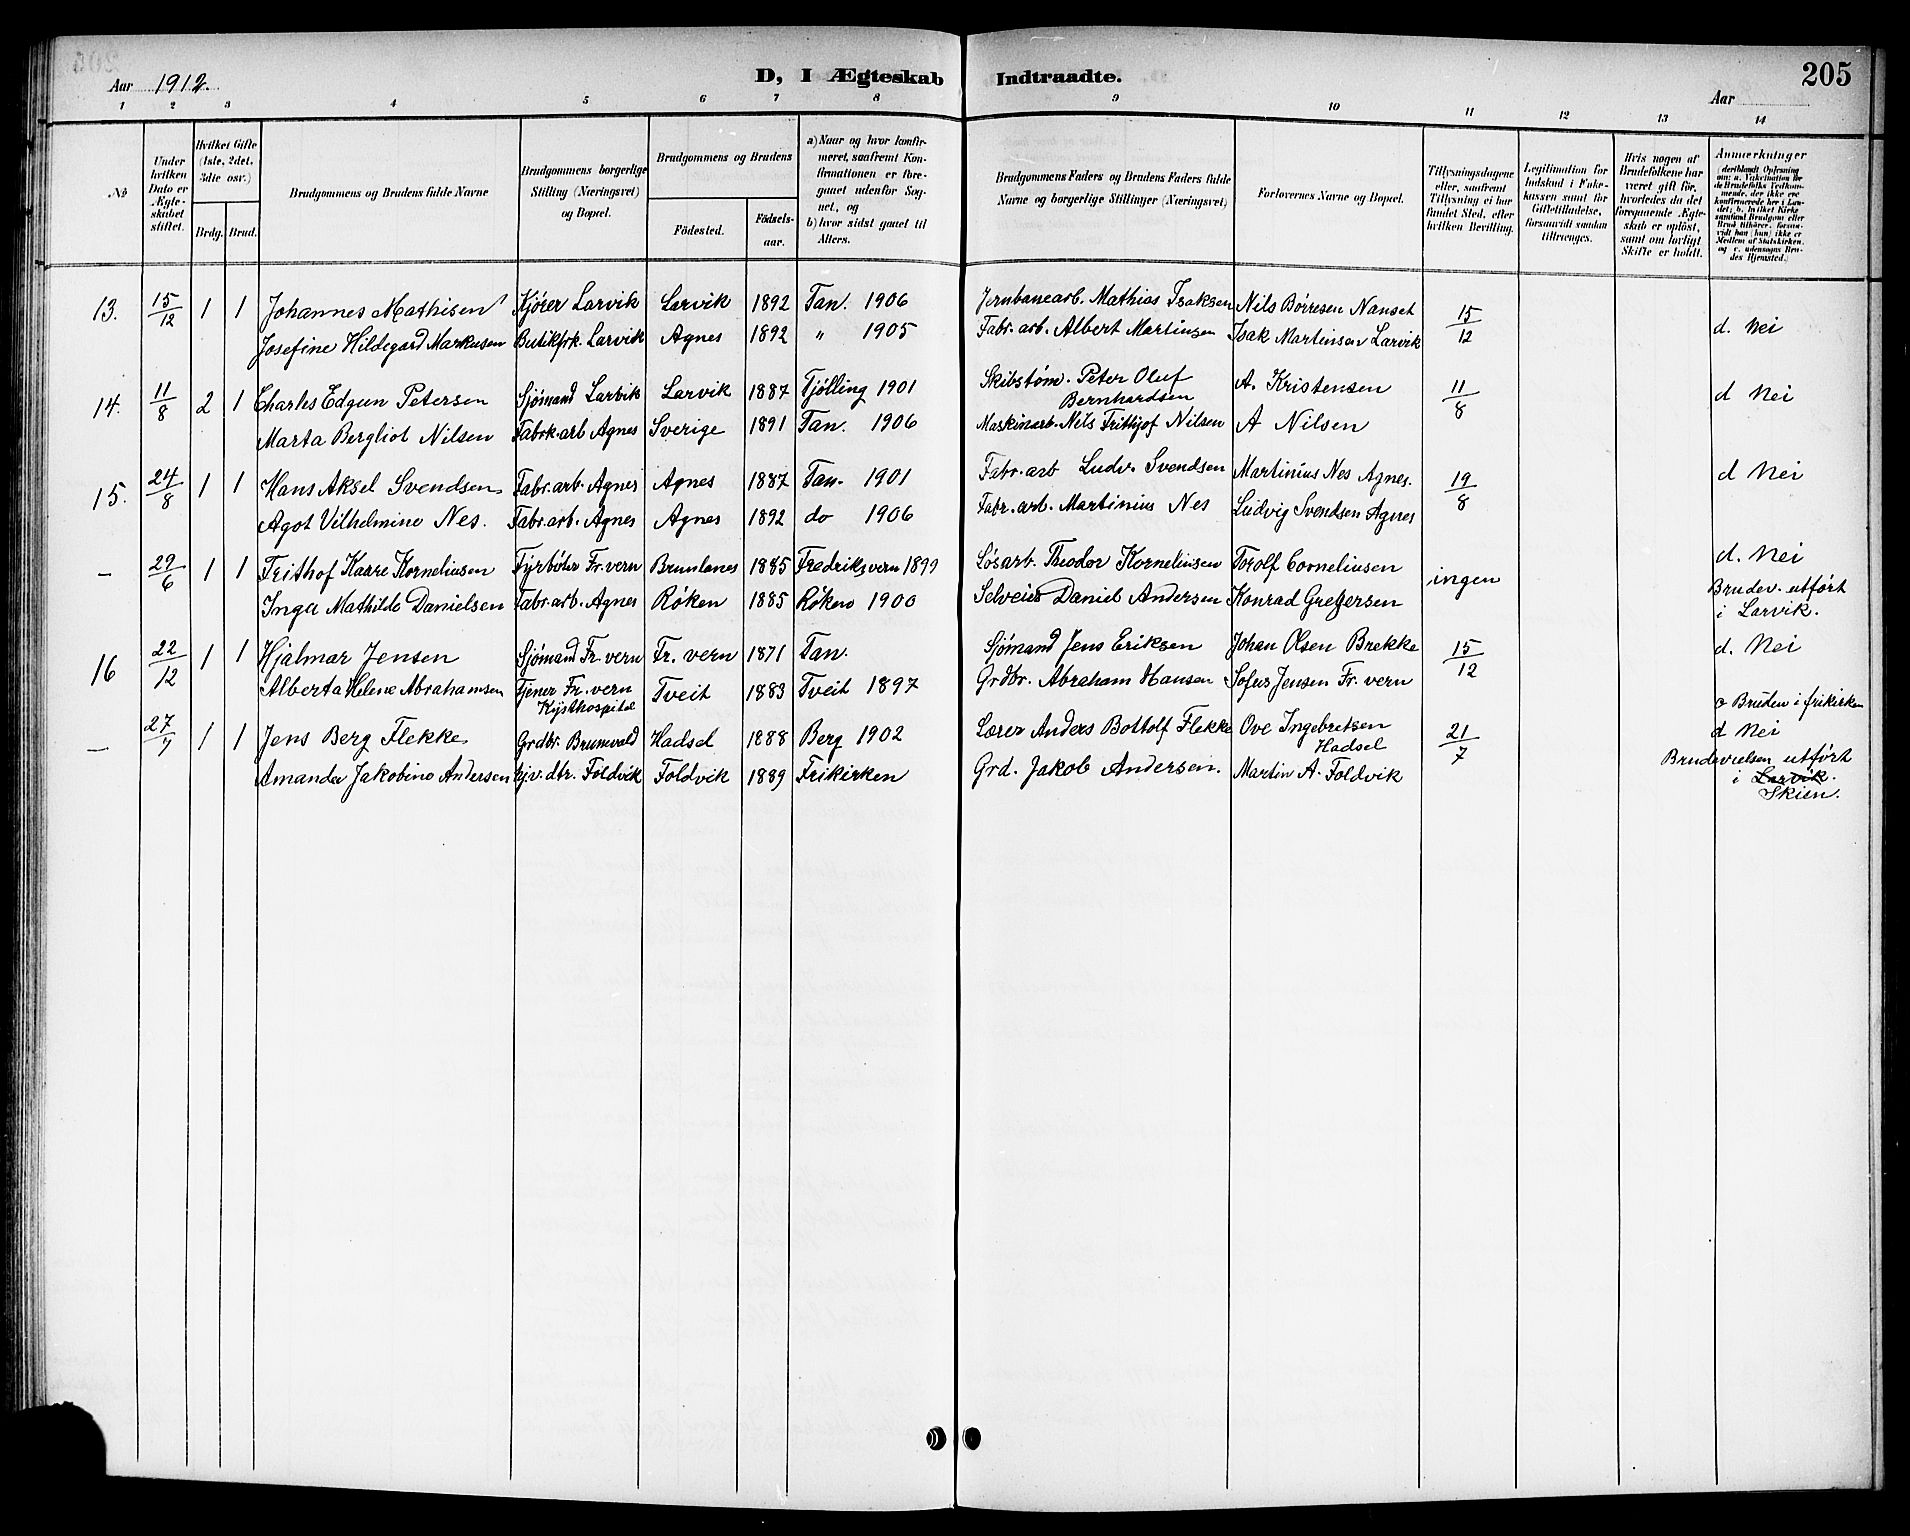 205
Aar 1912.
D, I Ægteskab Indtraadte.
Aar
1 2 3 4 5 6 7 8 9 10 11 12 13 14
No
Under hvilken Dato er Ægteskabet stiftet.
Hvilket Gifte (1ste, 2det, 3die osv.)
Brdg. Brud.
Brudgommens og Brudens fulde Navne
Brudgommens borgerlige Stilling (Næringsvei) og Bopæl.
Brudgommens og Brudens
Födested. Födselsaar.
a) Naar og hvor konfirmeret, saafremt Konfirmationen er foregaaet udenfor Sognet, og
b) hvor sidst gaaet til Alters.
Brudgommens Faders og Brudens Faders fulde Navne og borgerlige Stillinger (Næringsvei)
Forlovernes Navne og Bopæl.
Tillysningsdagene eller, saafremt Tillysning ei har fundet Sted, efter hvilken Bevilling.
Legitimation for Indskud i Enkekassen samt for Giftetilladelse, forsaavidt saadan tiltrænges.
Hvis nogen af Brudefolkene har været gift för, hvorledes da det foregaaende Ægteskab er oplöst, samt om lovligt Skifte er holdt.
Anmerkninger
13. 15/12 1 1 Johannes Mathisen Kjører Larvik Larvik 1892 Tan. 1906 Jernbanearb. Mathias Isaksen Nils Børresen Nanset 15/12
Josefine Hildegard Markusen Butikfrk. Larvik Agnes 1892 " 1905 Fabr. arb. Albert Martinsen Isak Martinsen Larvik d. Nei
14. 11/8 2 1 Charles Edgun Petersen Sjømand Larvik Larvik 1887 Tjølling 1901 Skibstøm. Peter Oluf Bernhardsen A. Kristensen 11/8 d Nei
Marta Bergliot Nilsen Fabrk. arb Agnes Sverige 1891 Tan. 1906 Maskinarb. Nils Frithjof Nilsen A Nilsen
15. 24/8 1 1 Hans Aksel Svendsen Fabr. arb. Agnes Agnes 1887 Tan. 1901 Fabr. arb Ludv. Svendsen Martinius Nes Agnes. 19/8 d Nei
Agot Vilhelmine Nes. Fabr. arb. Agnes Agnes 1892 do 1906 Fabr. arb. Martinius Nes Ludvig Svendsen Agnes
– 29/6 1 1 Frithof Kaare Korneliusen Fyrbøter Fr. vern Brunlanes 1885 Fredriksvern 1899 Løsarb. Theodor Korneliusen Torolf Corneliusen ingen d. Nei
Inga Mathilde Danielsen Fabr. arb. Agnes Røken 1885 Røken 1900 Selveier Daniel Andersen Konrad Gregersen Brudev. utført i Larvik.
16 22/12 1 1 Hjalmar Jensen Sjømand Fr. vern Fr. vern 1871 Tan. Sjømand Jens Eriksen Johan Olsen Brekke 15/12 d. Nei
Alberta Helene Abrahamsen Tjener Fr. vern Kysthospital Tveit 1883 Tveit 1897 Grdbr. Abraham Hansen Sofus Jensen Fr. vern
c Bruden i frikirken
– 27/7 1 1 Jens Berg Flekke Grdbr. Brunvald Hadsel 1888 Berg 1902 Lærer Anders Bottolf Flekke Ove Ingebretsen Hadsel 21/7 d Nei
Amanda Jakobine Andersen hjv. dtr. Foldvik Foldvik 1889 Frikirken Grd. Jakob Andersen. Martin A. Foldvik Brudevielsen utført i Larvik. Skien.